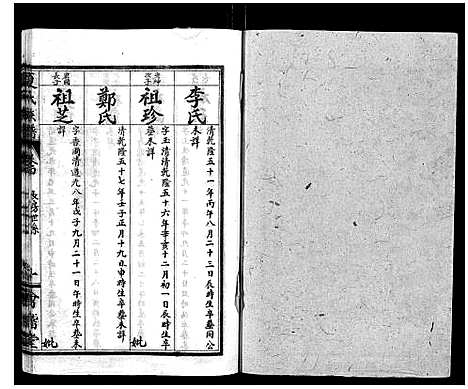 李氏
清乾隆五十一年丙午八月二十三日辰時生卒葬同公
葬未詳
祖珍
字玉清清乾隆五十六年辛亥十二月初一日辰時生卒
葬未詳
妣
鄭氏
清乾隆五十七年壬子正月十九日申時生卒葬未詳
長子
祖芝
字香圃清道光八年戊子九月二十一日午時生卒葬未
詳
妣
氏族譜
長房世系